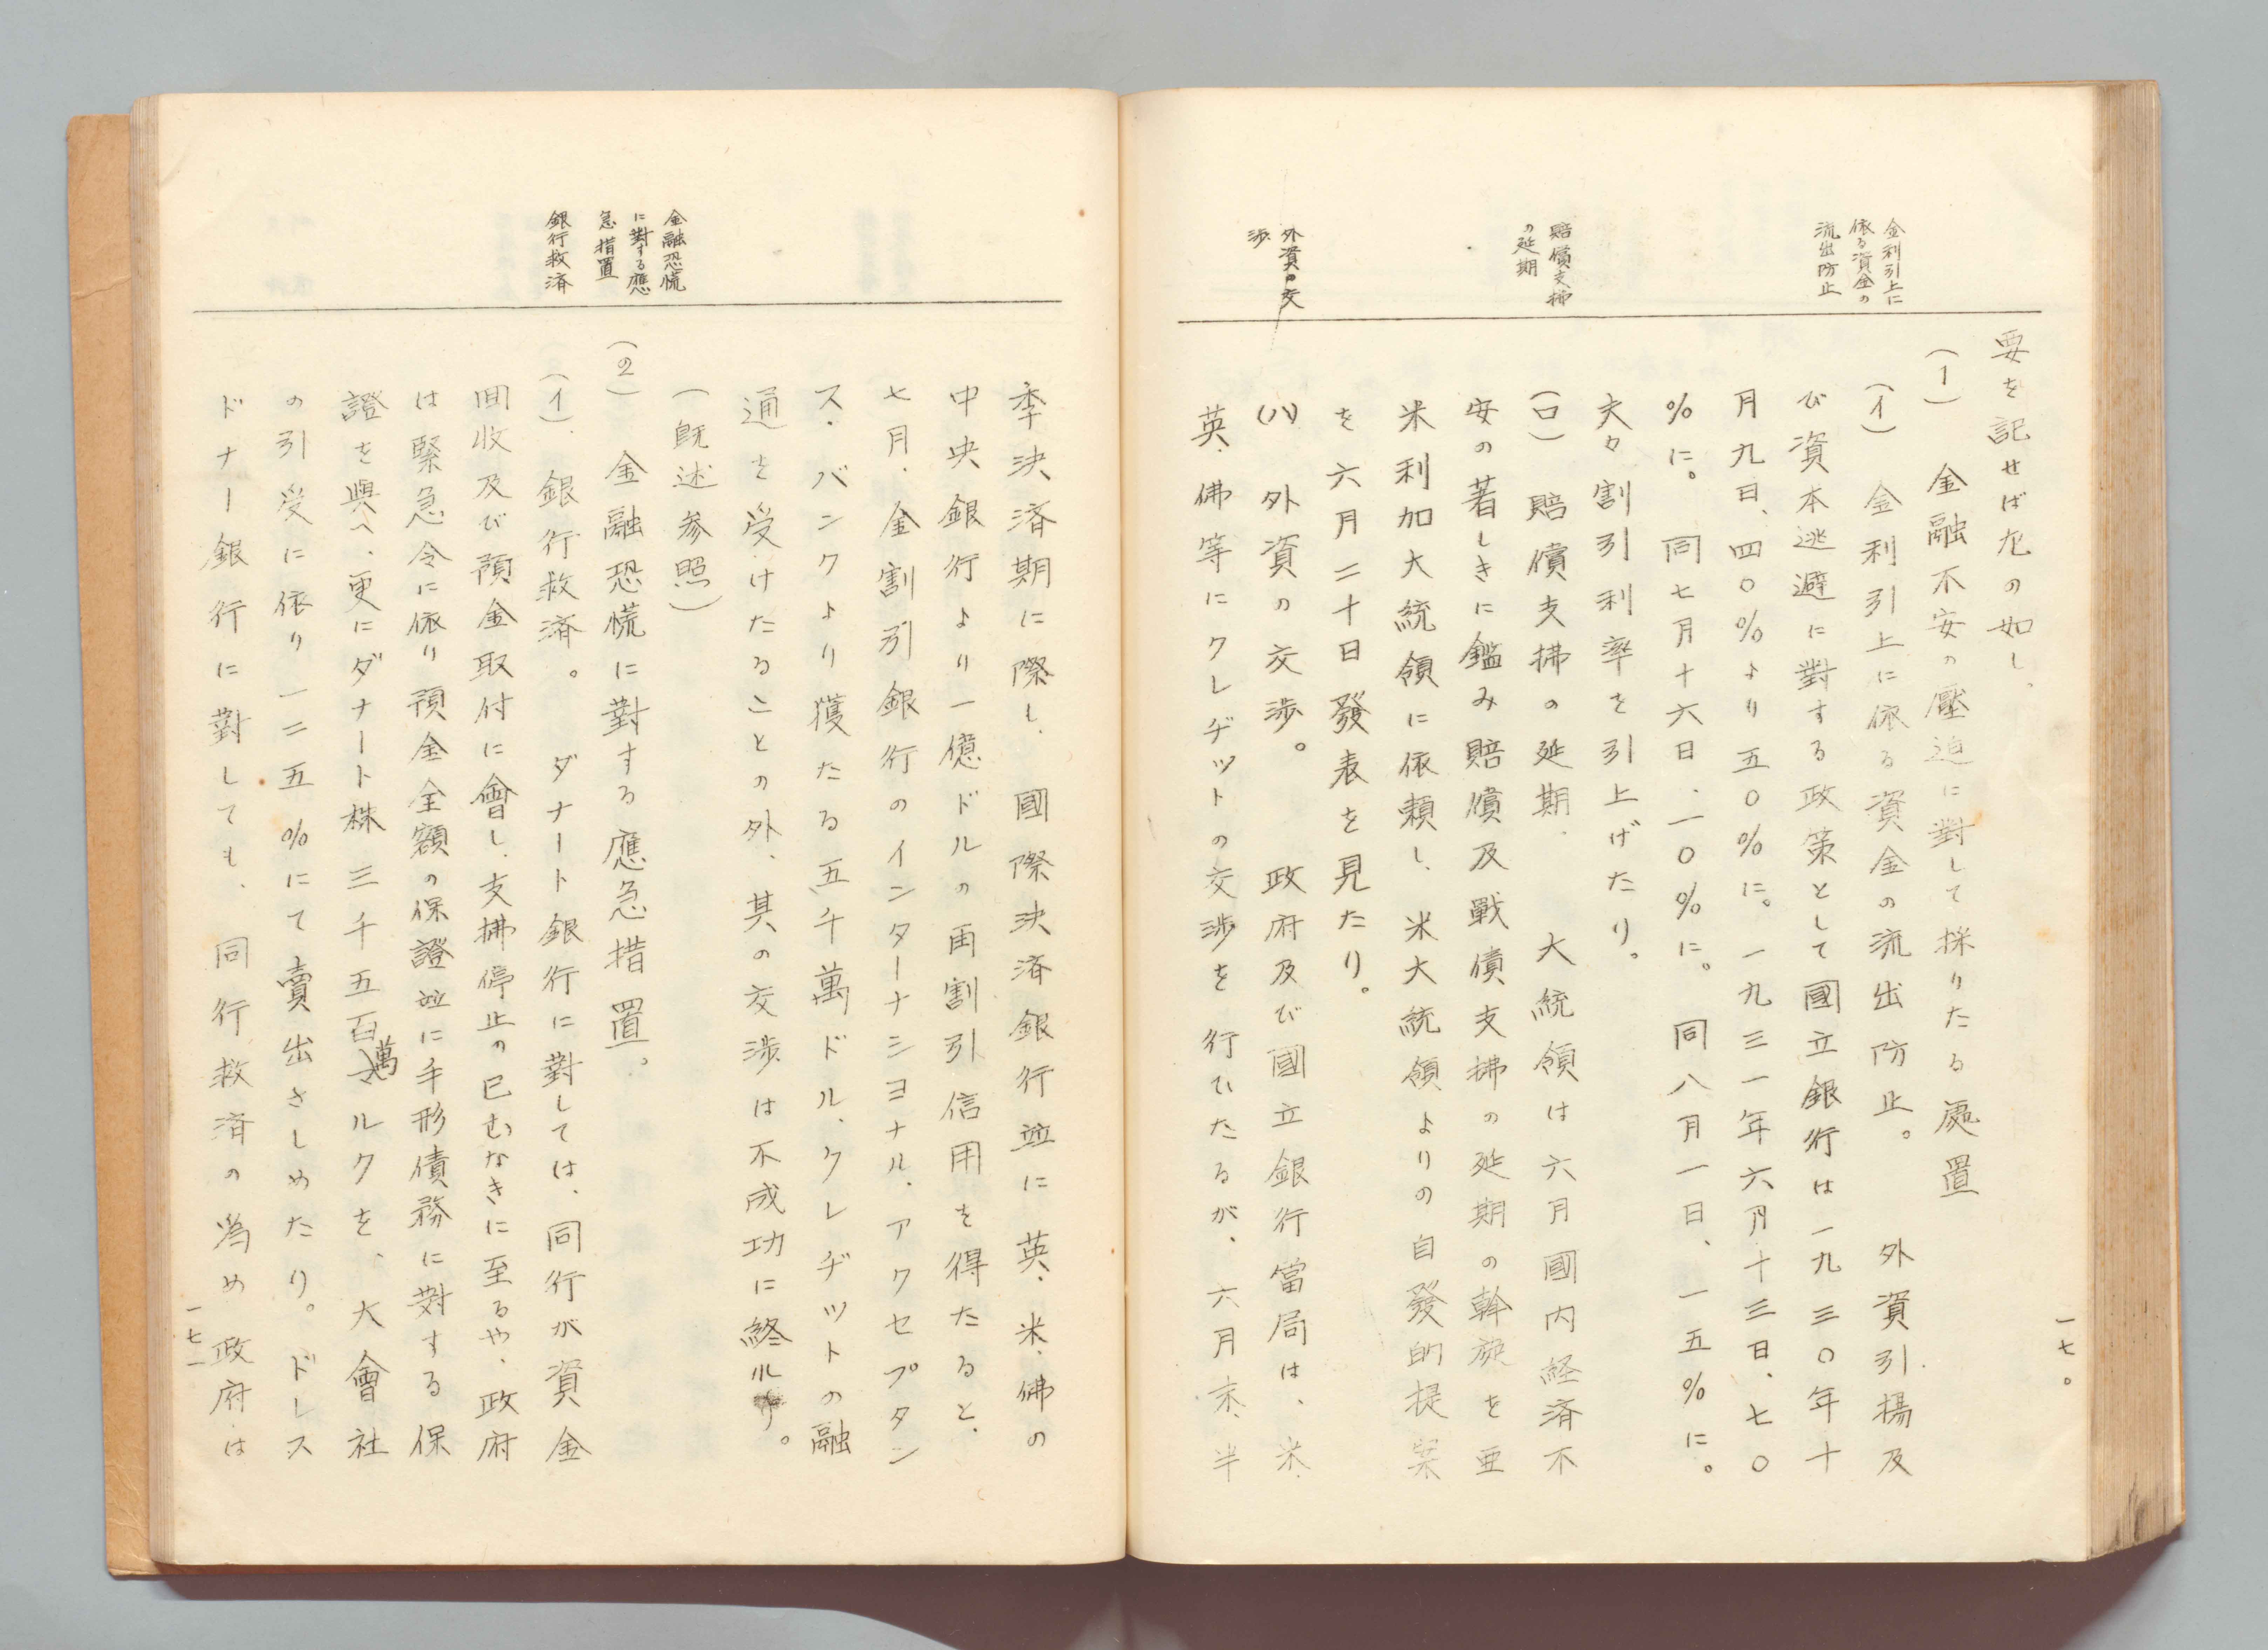 金利引上に
依る資金の
流出防止
賠償支拂
の延期
外資の交
渉
要を記せば左の如し、
(1) 金融不安の壓迫に對して採りたる處置
(イ) 金利引上に依る資金の流出防止。 外資引揚及
び資本逃避に對する政策として國立銀行は一九三〇年十
月九日、四〇%より五〇%に。一九三一年六月十三日、七〇
%に。同七月十六日、一〇%に。同八月一日、一五%に。
夫々割引利率を引上げたり。
(ロ) 賠償支拂の延期、 大統領は六月國内経済不
安の著しきに鑑み賠償及戰債支拂の延期の斡旋を亜
米利加大統領に依頼し、米大統領よりの自發的提案
を六月二十日發表を見たり。
(ハ) 外資の交渉。 政府及び國立銀行當局は、米、
英、佛等にクレヂットの交渉を行ひたるが、六月末、半
一七〇
金融恐慌
に對する應
急措置
銀行救済
季決済期に際し、國際決済銀行並に英、米、佛の
中央銀行より一億ドルの再割引信用を得たると、
七月、金割引銀行のインターナシヨナル、アクセプタン
ス・バンクより獲たる五千萬ドル、クレヂットの融
通を受けたることの外、其の交渉は不成功に終ルり。
(既述参照)
(2) 金融恐慌に對する應急措置。
(イ)、銀行救済。 ダナート銀行に對しては、同行が資金
回收及び預金取付に會し、支拂停止の已むなきに至るや、政府
は緊急令に依り預金全額の保證並に手形債務に対する保
證を與へ、更にダナート株三千五百萬マルクを、大會社
の引受に依り一二五%にて賣出さしめたり。ドレス
ドナー銀行に對しても、同行救済の為め政府は
一七一